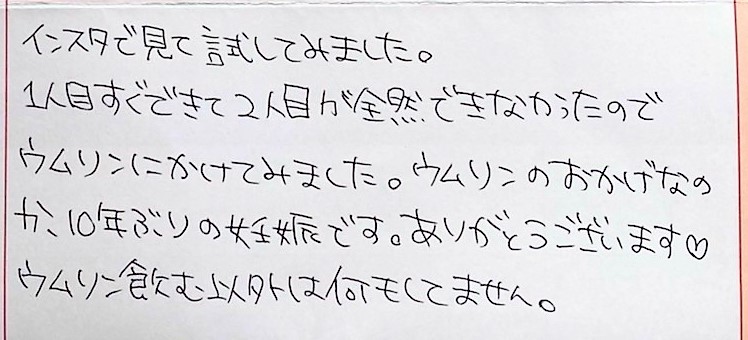 インスタで見て試してみました。
1人目すぐできて2人目が全然できなかったので
ウムリンにかけてみました。ウムリンのおかげなの
か、10年ぶりの妊娠です。ありがとうございます♡
ウムリン飲む以外は何もしてません。